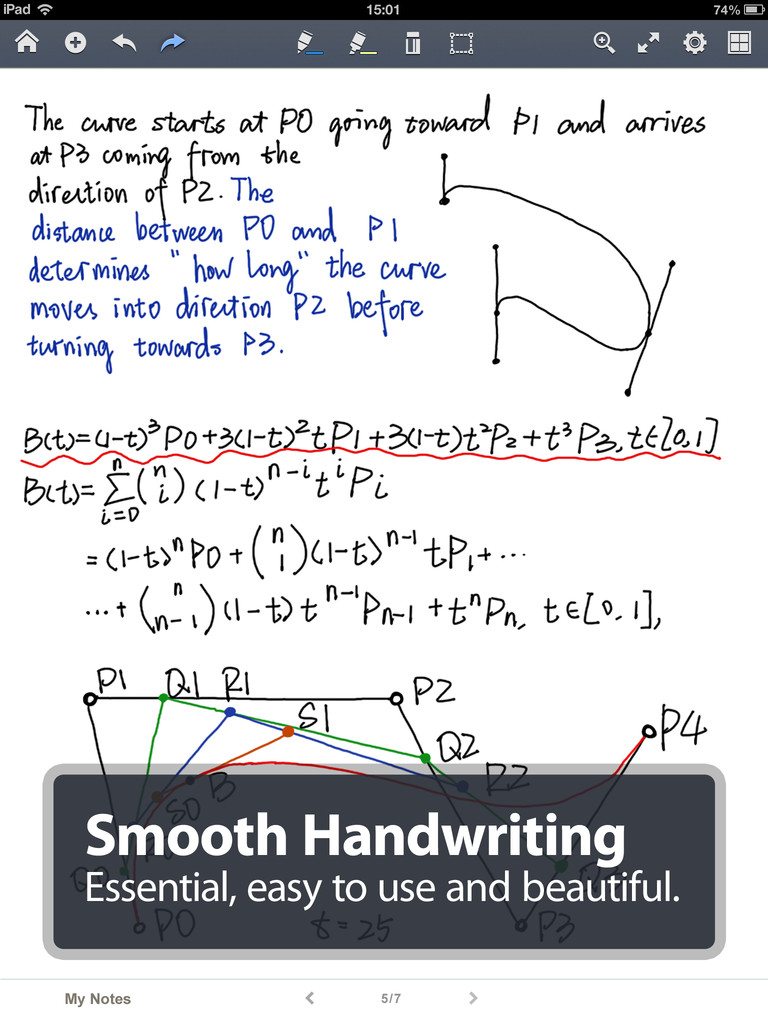 iPad 15:01 74%
The curve starts at P0 going toward P1 and arrives
at P3 coming from the
direction of P2. The
distance between P0 and P1
determines "how long" the curve
moves into direction P2 before
turning towards P3.
B(t)=(1-t)³P0+3(1-t)²tP1+3(1-t)t²P2+t³P3, t∈[0,1]
B(t)=∑ⁿᵢ₌₀(ⁿᵢ)(1-t)ⁿ⁻ⁱtⁱPi
=(1-t)ⁿP0+(ⁿ₁)(1-t)ⁿ⁻¹tP₁+...
...+(ⁿₙ₋₁)(1-t)tⁿ⁻¹Pₙ₋₁+tⁿPₙ, t∈[0,1],
P1 Q1 R1 P2
S1 P4
Q2
R2
S0 B
Smooth Handwriting
Essential, easy to use and beautiful.
P0 t=25 P3
My Notes 5/7